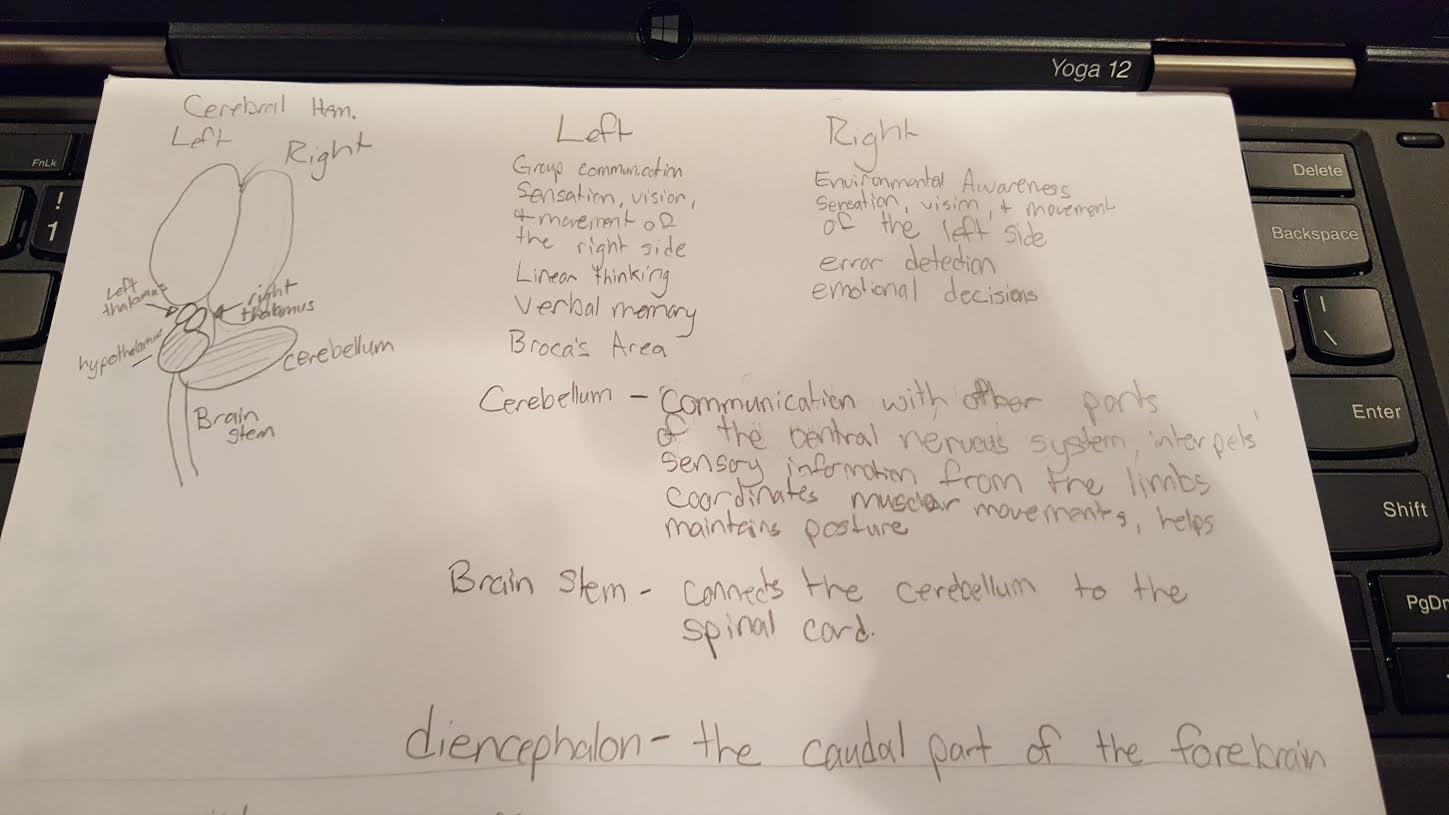 Yoga 12
Cerebral Hem.
Left
Right
Left thalamus
right thalamus
hypothalamus
cerebellum
Brain
stem
Left
Group communication
Sensation, vision,
+ movement of
the right side
Linear thinking
Verbal memory
Broca's Area
Right
Environmental Awareness
Sensation, vision, + movement
of the left side
error detection
emotional decisions
Cerebellum - Communication with other parts
of the central nervous system, interpets
sensory information from the limbs
coordinates muscular movements, helps
maintains posture
Brain Stem - connects the cerebellum to the
spinal cord.
diencephalon - the caudal part of the forebrain
FnLk
!
1
Delete
Backspace
|
\
Enter
Shift
PgDn